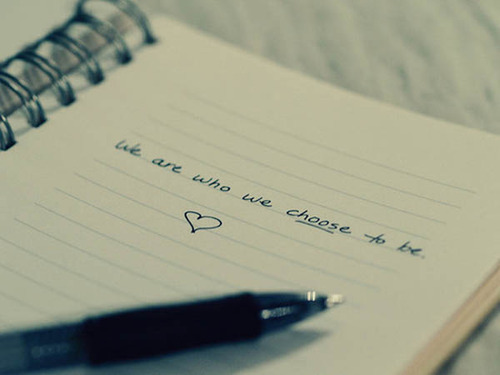 We are who we choose to be.